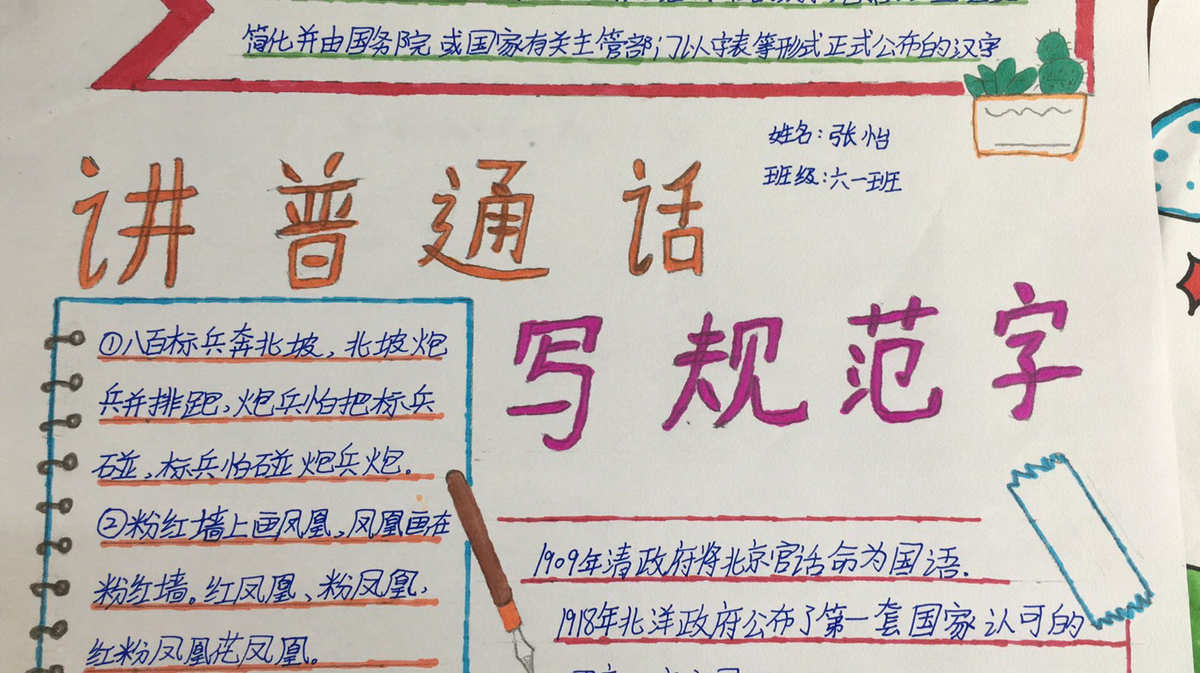 简化并由国务院或国家有关主管部门以字表等形式正式公布的汉字
姓名:张怡
班级:六一班
讲普通话
写规范字
①八百标兵奔北坡,北坡炮
兵并排跑,炮兵怕把标兵
碰,标兵怕碰炮兵炮。
②粉红墙上画凤凰,凤凰画在
粉红墙。红凤凰、粉凤凰,
红粉凤凰花凤凰。
1909年清政府将北京官话命为国语.
1918年北洋政府公布了第一套国家认可的